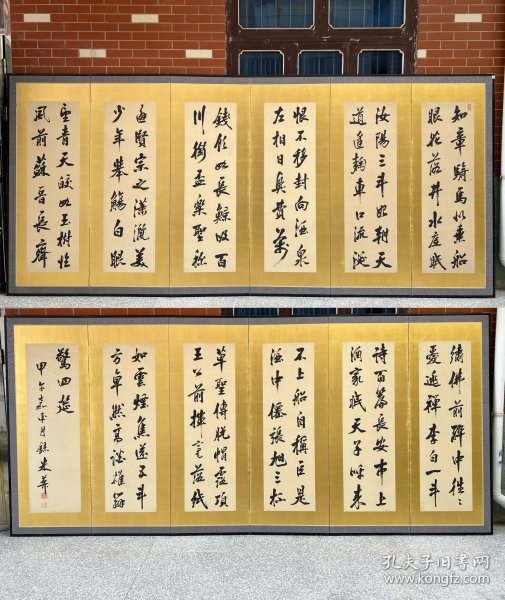 知章騎馬似乘船
眼花落井水底眠
汝陽三斗始朝天
道逢麴車口流涎
恨不移封向酒泉
左相日興費萬
錢飲如長鯨吸百
川銜盃樂聖稱
避賢宗之瀟灑美
少年舉觴白眼
望青天皎如玉樹臨
風前蘇晉長齋
繡佛前醉中往〻
愛逃禪李白一斗
詩百篇長安市上
酒家眠天子呼来
不上船自稱臣是
酒中僊張旭三杯
草聖傳脱帽露頂
王公前揮毫落紙
如雲煙焦遂五斗
方卓然高談雄辯
驚四筵
甲午嘉平月
孔夫子旧书网
www.kongfz.com